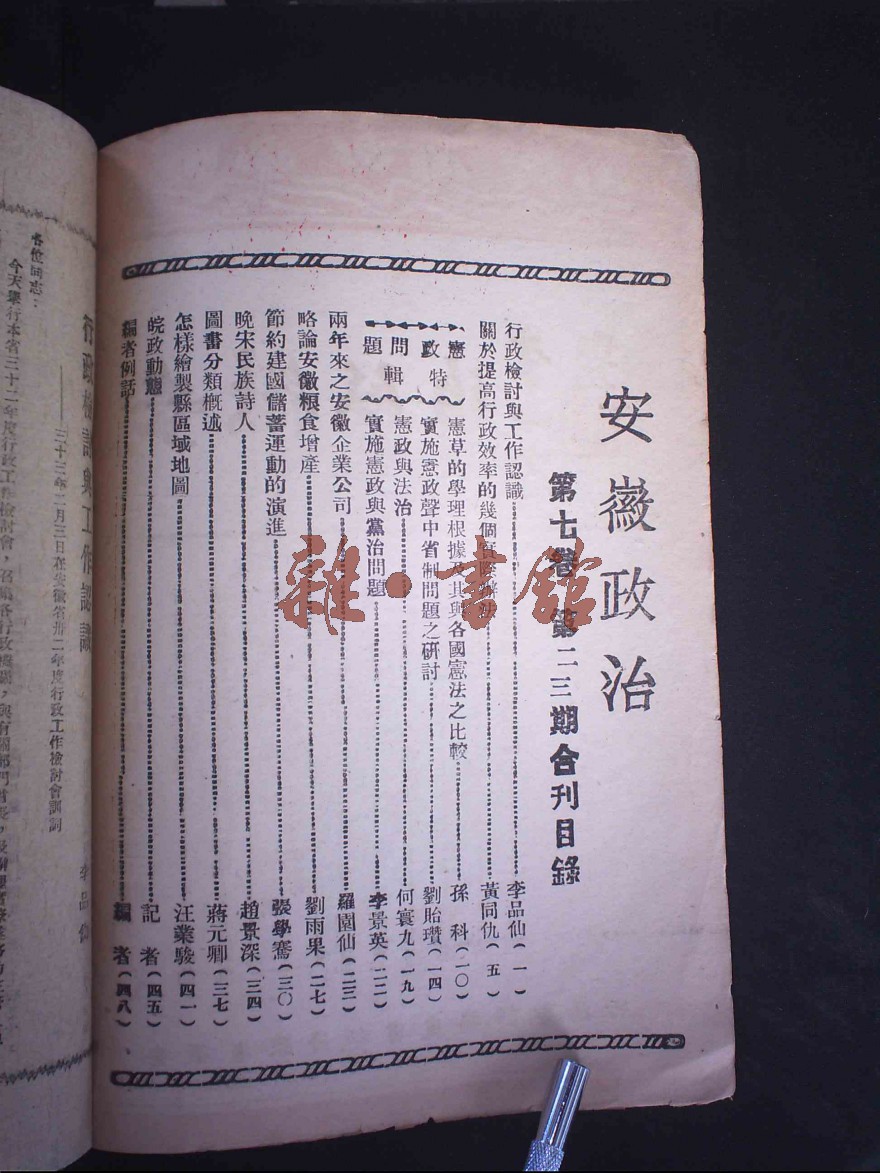 安徽政治
第七卷 第二三期合刊目錄
行政檢討與工作認識 李品仙(一)
關於提高行政效率的幾個實際辦法 黃同仇(五)
憲政問題特輯
憲草的學理根據及其與各國憲法之比較 孫科(一〇)
實施憲政聲中省制問題之研討 劉貽瓚(一四)
憲政與法治 何寰九(一九)
實施憲政與黨治問題 李景英(二二)
兩年來之安徽企業公司 羅園仙(二三)
略論安徽粮食增產 劉雨果(二七)
節約建國儲蓄運動的演進 張學騫(三〇)
晚宋民族詩人 趙景深(三四)
圖書分類概述 蔣元卿(三七)
怎樣繪製縣區域地圖 汪業駿(四一)
皖政動態 記者(四五)
編者例話 編者(四八)
雜·書館
行政檢討與工作認識
李品仙
三十三年二月三日在安徽省卅二年度行政工作檢討會訓詞
各位同志:
今天舉行本省三十二年度行政工作檢討會,召集各行政機關,與有關部門首長,